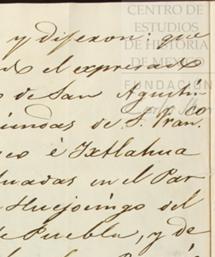 CENTRO DE
ESTUDIOS
DE HISTORIA
DE MÉXICO
FUNDACIÓN
y dijeron: que
el expresado
de San Agustin
y co
de S. Fran
co é Ixtlahua
tuadas en el Par
Huejocingo del
Puebla, y de